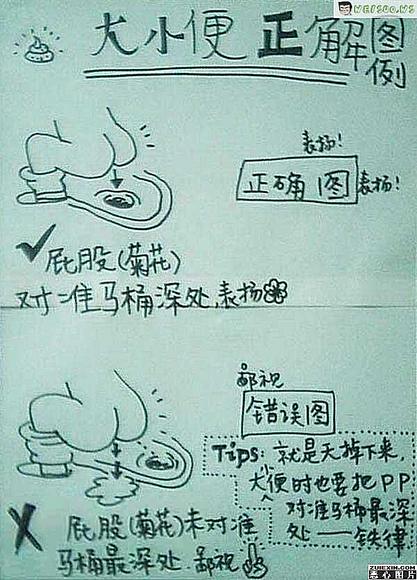 WEISUO.WS
大小便正解图例
表扬!
正确图
表扬!
屁股(菊花)
对准马桶深处,表扬
鄙视
错误图
Tips: 就是天掉下来,
大小便时也要把PP
对准马桶最深
处——铁律
屁股(菊花)未对准
马桶最深处.鄙视
ZUIEXIN.COM